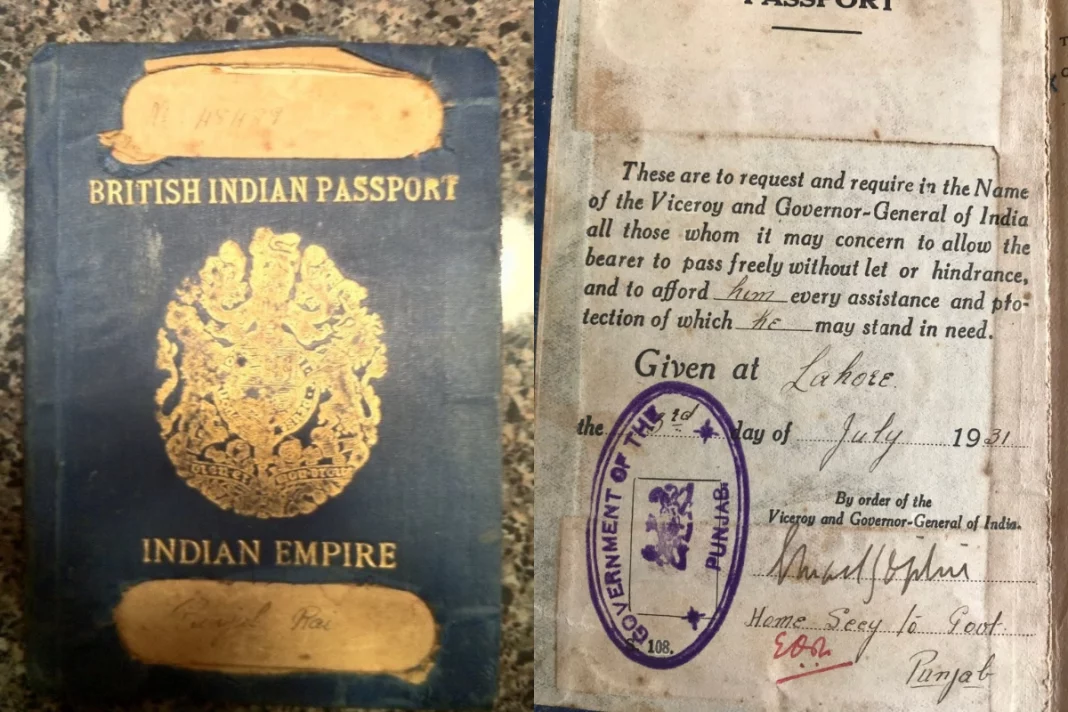 BRITISH INDIAN PASSPORT
INDIAN EMPIRE
Rai
PASSPORT
These are to request and require in the Name
of the Viceroy and Governor-General of India
all those whom it may concern to allow the
bearer to pass freely without let or hindrance,
and to afford him every assistance and pro-
tection of which he may stand in need.
Given at Lahore.
the 3rd day of July 1931
By order of the
Viceroy and Governor-General of India.
Home Secy to Govt
Punjab
GOVERNMENT OF THE PUNJAB
108.